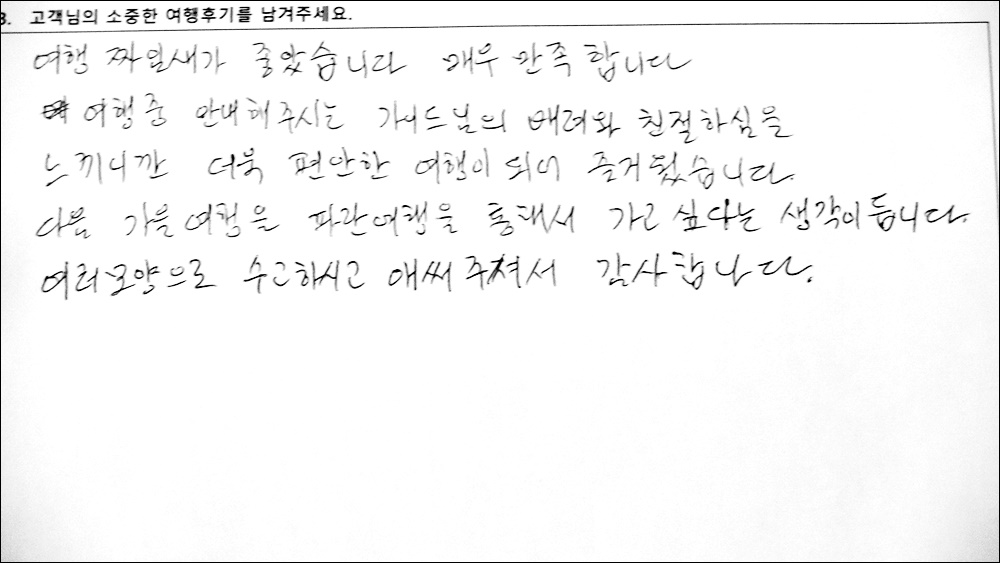 3. 고객님의 소중한 여행후기를 남겨주세요.
여행 짜임새가 좋았습니다 매우 만족합니다
여행중 안내해주시는 가이드님의 배려와 친절하심을
느끼니깐 더욱 편안한 여행이 되어 즐거웠습니다.
다음 가을여행을 파란여행을 통해서 가고싶다는 생각이듭니다.
여러모양으로 수고하시고 애써주셔서 감사합니다.